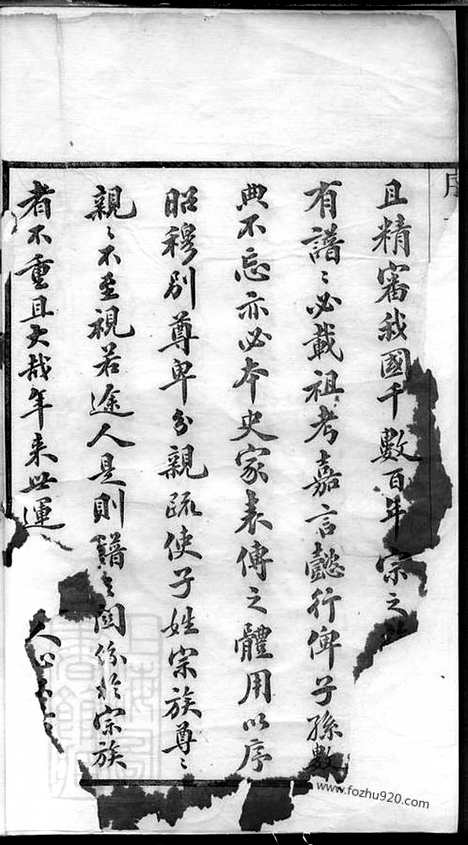 且精審我國千數百年宗之
有譜〻必載祖考嘉言懿行俾子孫數
典不忘亦必本史家表傳之體用以序
昭穆別尊卑分親疏使子姓宗族尊〻
親〻不至視若途人是則譜之關係於宗族
者不重且大哉年來世運
人心
www.fozhu920.com